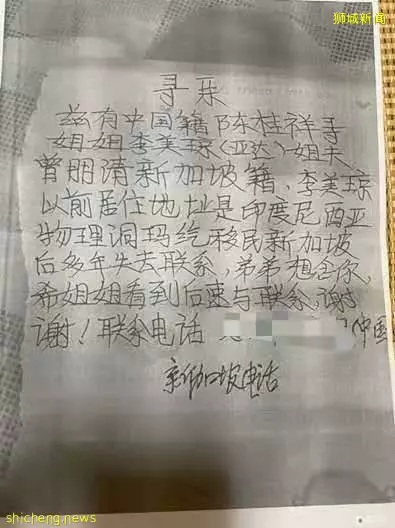 狮城新闻
寻亲
兹有中国籍陈桂祥寻
姐姐李美琼(亚达)姐夫
曾明清新加坡籍,李美琼
以前居住地址是印度尼西亚
物理洞玛纥移民新加坡
后多年失去联系,弟弟想念你,
希姐姐看到后速与联系,谢
谢!联系电话
中国
新加坡电话
shicheng.news